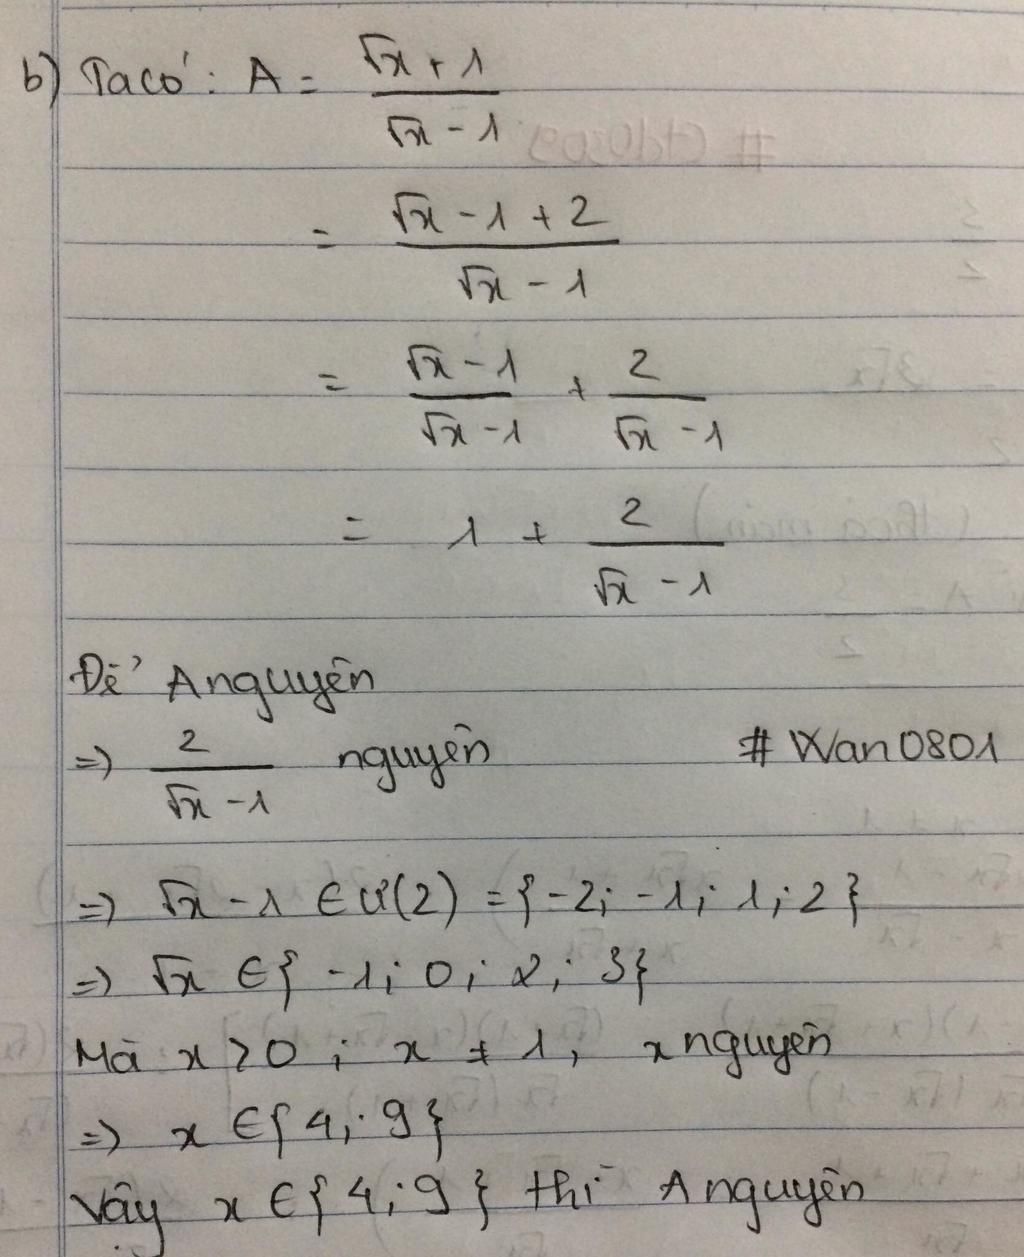 b) Ta có: A = (√x + 1)/(√x - 1)
= (√x - 1 + 2)/(√x - 1)
= (√x - 1)/(√x - 1) + 2/(√x - 1)
= 1 + 2/(√x - 1)
Để A nguyên
=> 2/(√x - 1) nguyên # Wan0801
=> √x - 1 ∈ Ư(2) = {-2; -1; 1; 2}
=> √x ∈ { -1; 0; 2; 3}
Mà x > 0; x ≠ 1, x nguyên
=> x ∈ { 4; 9 }
Vậy x ∈ { 4; 9 } thì A nguyên